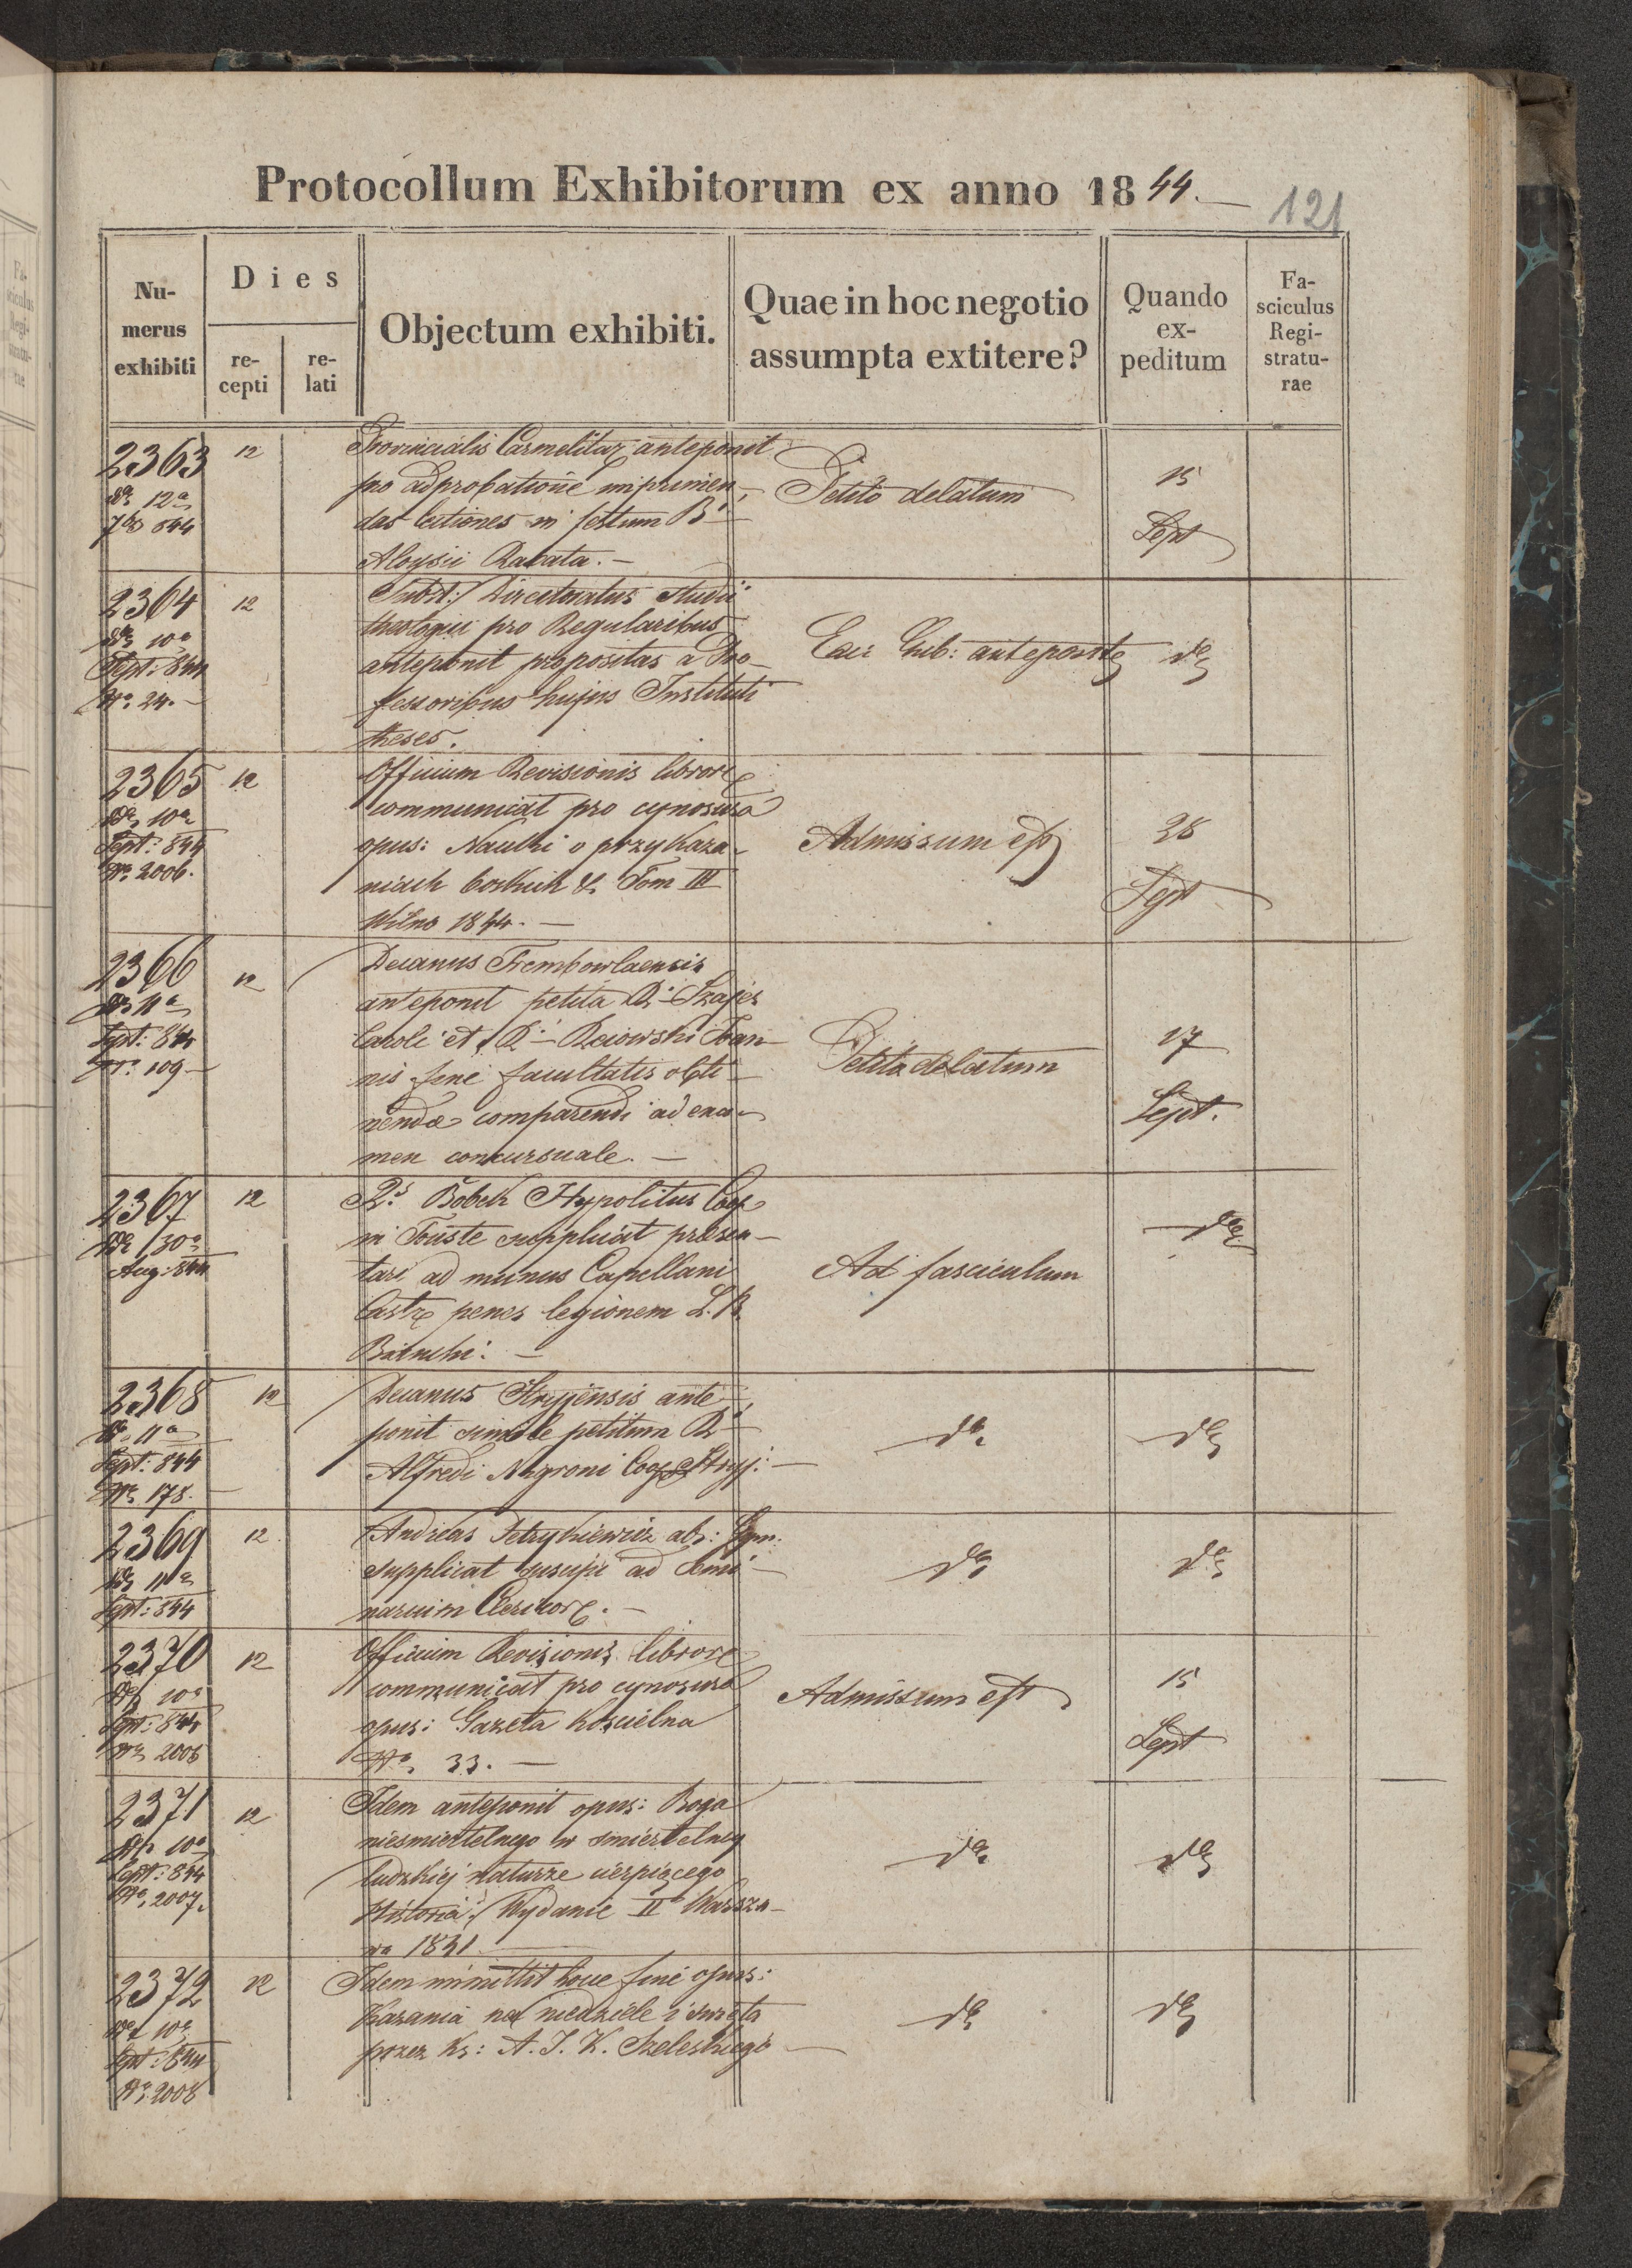 Protocollum Exhibitorum ex anno 1844.
121
Nu-
merus
exhibiti
Dies
re-
cepti
re-
lati
Objectum exhibiti.
Quae in hoc negotio
assumpta extitere?
Quando
ex-
peditum
Fa-
sciculus
Regi-
stratu-
rae
2363
12a
7b 844
12
Provincialis Carmelitar anteponit
pro adprobatione imprimen-
das lectiones in festum B
Aloysii Rabata. -
Petito delatum
15
Sept
2364
10a
Sept: 844
No 24. -
12
Subst: Directoratus studii
theologici pro Regularibus
anteponit propositas a Pro-
fessoribus hujus Instituti
theses.
Exc Gub: anteponite
do
2365
do 10a
Sept: 844
No 2006.
12
Officium Revisionis libror
communicat pro cynosura
opus: Nauki o przykaza-
niach boskich & Tom III
Wilno 1844. -
Admissum est
28
Sept
2366
do 11a
Sept: 844
No 109 -
12
Decanus Trembowlaensis
anteponit petita R Szajer
Caroli et R Joan-
nis fine facultatis obti-
nendae comparendi ad exa-
men concursuale. -
Petito delatum
17
Sept.
2367
do 30a
Aug: 844
12
Rs Bobek Hypolitus Coop
in Touste supplicat praesen-
tari ad munus Capellani
Castr penes legionem L. B.
Bianchi: -
Ad fasciculum
do
2368
do 11a
Sept: 844
No 178.
12
Decanus Stryjensis ante-
ponit simile petitum R
Alfredi Nigroni Coop Stryj: -
do
do
2369
do 11a
Sept: 844
12
Andreas Petrykiewicz abs: Gym:
supplicat suscipi ad Semi-
narium Clericor. -
do
do
2370
do 10a
Sept: 844
No 2005
12
Officium Revisionis libror
communicat pro cynosura
opus: Gazeta kościelna
No 33. -
Admissum est
15
Sept
2371
do 10a
Sept: 844
No 2007.
12
Idem anteponit opus: Boga
niesmiertelnego w smiertelney
ludzkiéj naturze cierpiącego
Historia: Wydanie II Warsza-
wa 1841
do
do
2372
do 10a
Sept: 844
No 2008
12
Idem mittit hocce fine opus:
Kazania na niedziele i swięta
przez Ks: A. J. K. Szeleskiego
do
do